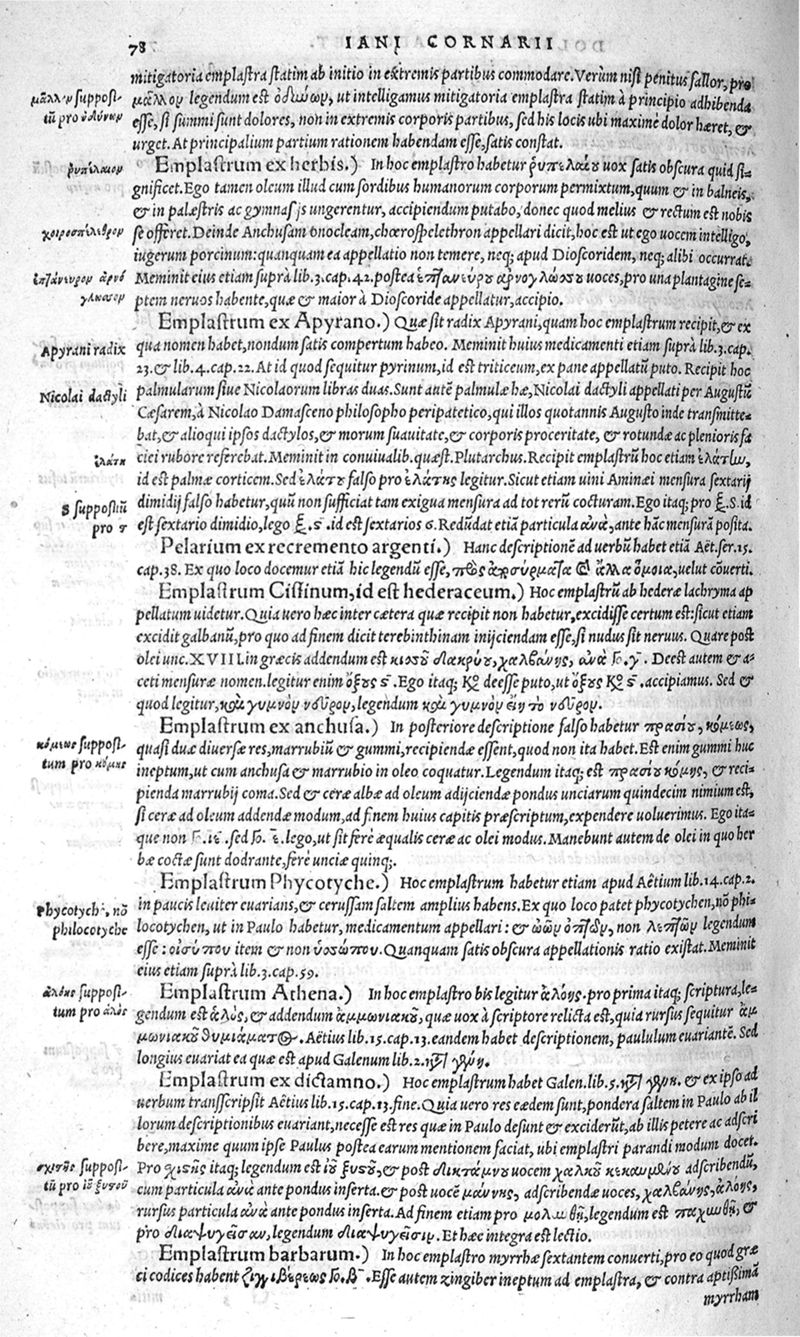 78 IANI CORNARII
mitigatoria emplastra statim ab initio in extremis partibus commodare. Verùm nisi penitus fallor, pro
μᾶλλον legendum est ὀδυνῶν, ut intelligamus mitigatoria emplastra statim à principio adhibenda
μᾶλλον supposi-
tũ pro ὀδυνῶν
esse, si summi sunt dolores, non in extremis corporis partibus, sed his locis ubi maxime dolor hæret, &
urget. At principalium partium rationem habendam esse, satis constat.
Emplastrum ex herbis.) In hoc emplastro habetur ῥυπελαίου uox satis obscura quid si-
gnificet. Ego tamen oleum illud cum sordibus humanorum corporum permixtum, quum & in balneis,
& in palæstris ac gymnasijs ungerentur, accipiendum putabo, donec quod melius & rectum est nobis
se offeret. Deinde Anchusam onocleam, chœrospelethron appellari dicit, hoc est ut ego uocem intelligo,
iugerum porcinum: quanquam ea appellatio non temere, neq; apud Dioscoridem, neq; alibi occurrat.
Meminit eius etiam suprà lib. 3. cap. 42. postea ἑπταπνεύρου ἀρνογλώσσου uoces, pro una plantagine se-
ptem neruos habente, quæ & maior à Dioscoride appellatur, accipio.
Emplastrum ex Apyrano.) Quæ sit radix Apyrani, quam hoc emplastrum recipit, & ex
Apyrani radix
qua nomen habet, nondum satis compertum habeo. Meminit huius medicamenti etiam suprà lib. 3. cap.
23. & lib. 4. cap. 22. At id quod sequitur pyrinum, id est triticeum, ex pane appellatũ puto. Recipit hoc
Nicolai dactyli
palmularum siue Nicolaorum libras duas. Sunt autẽ palmulæ hæ, Nicolai dactyli appellati per Augustũ
Cæsarem, à Nicolao Damasceno philosopho peripatetico, qui illos quotannis Augusto inde transmitte-
bat, & alioqui ipsos dactylos, & morum suauitate, & corporis proceritate, & rotundæ ac plenioris fa
ciei rubore referebat. Meminit in conuiualib. quæst. Plutarchus. Recipit emplastrũ hoc etiam ἐλάτην,
ἐλάτη
id est palmæ corticem. Sed ἐλάτου falso pro ἐλάτης legitur. Sicut etiam uini Aminæi mensura sextarij
dimidij falso habetur, quũ non sufficiat tam exigua mensura ad tot rerũ cocturam. Ego itaq; pro ξ. S. id
est sextario dimidio, lego ξ. ς. id est sextarios 6. Redũdat etiã particula ἀνὰ, ante hãc mensurã posita.
Pelarium ex recremento argenti.) Hanc descriptionẽ ad uerbũ habet etiã Aët. ser. 15.
cap. 38. Ex quo loco docemur etiã hic legendũ esse, πρὸς ἀποσύρματα καὶ ἄλλα ὅμοια, uelut cõuerti.
Emplastrum Cissinum, id est hederaceum.) Hoc emplastrũ ab hederæ lachryma ap
pellatum uidetur. Quia uero hæc inter cætera quæ recipit non habetur, excidisse certum est: sicut etiam
excidit galbanũ, pro quo ad finem dicit terebinthinam inijciendam esse, si nudus sit neruus. Quare post
olei unc. XVIII. in græcis addendum est κισσοῦ δακρύου, χαλβάνης, ἀνὰ Γο. γ. Deest autem & a-
ceti mensuræ nomen. legitur enim ὄξους ς. Ego itaq; Κο deesse puto, ut ὄξους Κο ς. accipiamus. Sed &
quod legitur, καὶ γυμνὸν νεῦρον, legendum καὶ γυμνὸν εἴη τὸ νεῦρον.
Emplastrum ex anchusa.) In posteriore descriptione falso habetur πρασίου, κόμεως,
κόμεως supposi-
tum pro κόμης
quasi duæ diuersæ res, marrubiũ & gummi, recipiendæ essent, quod non ita habet. Est enim gummi huc
ineptum, ut cum anchusa & marrubio in oleo coquatur. Legendum itaq; est πρασίου κόμης, & reci-
pienda marrubij coma. Sed & ceræ albæ ad oleum adijciendæ pondus unciarum quindecim nimium est,
si ceræ ad oleum addendæ modum, ad finem huius capitis præscriptum, expendere uoluerimus. Ego ita-
que non Γ. ιε. sed Γο. ε. lego, ut sit ferè æqualis ceræ ac olei modus. Manebunt autem de olei in quo her
bæ coctæ sunt dodrante, ferè unciæ quinq;.
Emplastrum Phycotyche.) Hoc emplastrum habetur etiam apud Aëtium lib. 14. cap. 2.
Phycotyche, nõ
philocotyche
in paucis leuiter euarians, & cerussam saltem amplius habens. Ex quo loco patet phycotychen, nõ phi-
locotychen, ut in Paulo habetur, medicamentum appellari: & ὠῶν ὀπτῶν, non λεπτῶν legendum
esse: οἰσύπου item & non ὑσσώπου. Quanquam satis obscura appellationis ratio existat. Meminit
eius etiam suprà lib. 3. cap. 59.
Emplastrum Athena.) In hoc emplastro bis legitur ἀλόης. pro prima itaq; scriptura, le-
ἀλόης supposi-
tum pro ἁλὸς
gendum est ἁλὸς, & addendum ἀμμωνιακοῦ, quæ uox à scriptore relicta est, quia rursus sequitur ἀμ
μωνιακοῦ θυμιάματος. Aëtius lib. 15. cap. 13. eandem habet descriptionem, paululum euariantẽ. Sed
longius euariat ea quæ est apud Galenum lib. 2. κατὰ γένη.
Emplastrum ex dictamno.) Hoc emplastrum habet Galen. lib. 5. κατὰ γένη. & ex ipso ad
uerbum transscripsit Aëtius lib. 15. cap. 13. fine. Quia uero res eædem sunt, pondera saltem in Paulo ab il
lorum descriptionibus euariant, necesse est res quæ in Paulo desunt & exciderũt, ab illis petere ac adscri
bere, maxime quum ipse Paulus postea earum mentionem faciat, ubi emplastri parandi modum docet.
Pro σχιστῆς itaq; legendum est ἰοῦ ξυστοῦ, & post δικτάμνου uocem χαλκοῦ κεκαυμένου adscribendũ,
σχιστῆς supposi-
tũ pro ἰοῦ ξυστοῦ
cum particula ἀνὰ ante pondus inserta. & post uocẽ μάννης, adscribendæ uoces, χαλβάνης, ἀλόης,
rursus particula ἀνὰ ante pondus inserta. Ad finem etiam pro μολυνθῇ, legendum est παχυνθῇ, &
pro διαψυγεῖσαν, legendum διαψυγεῖσιν. Et hæc integra est lectio.
Emplastrum barbarum.) In hoc emplastro myrrhæ sextantem conuerti, pro eo quod græ
ci codices habent ζιγγιβέρεως Γο. β. Esse autem zingiber ineptum ad emplastra, & contra aptissimã
myrrham